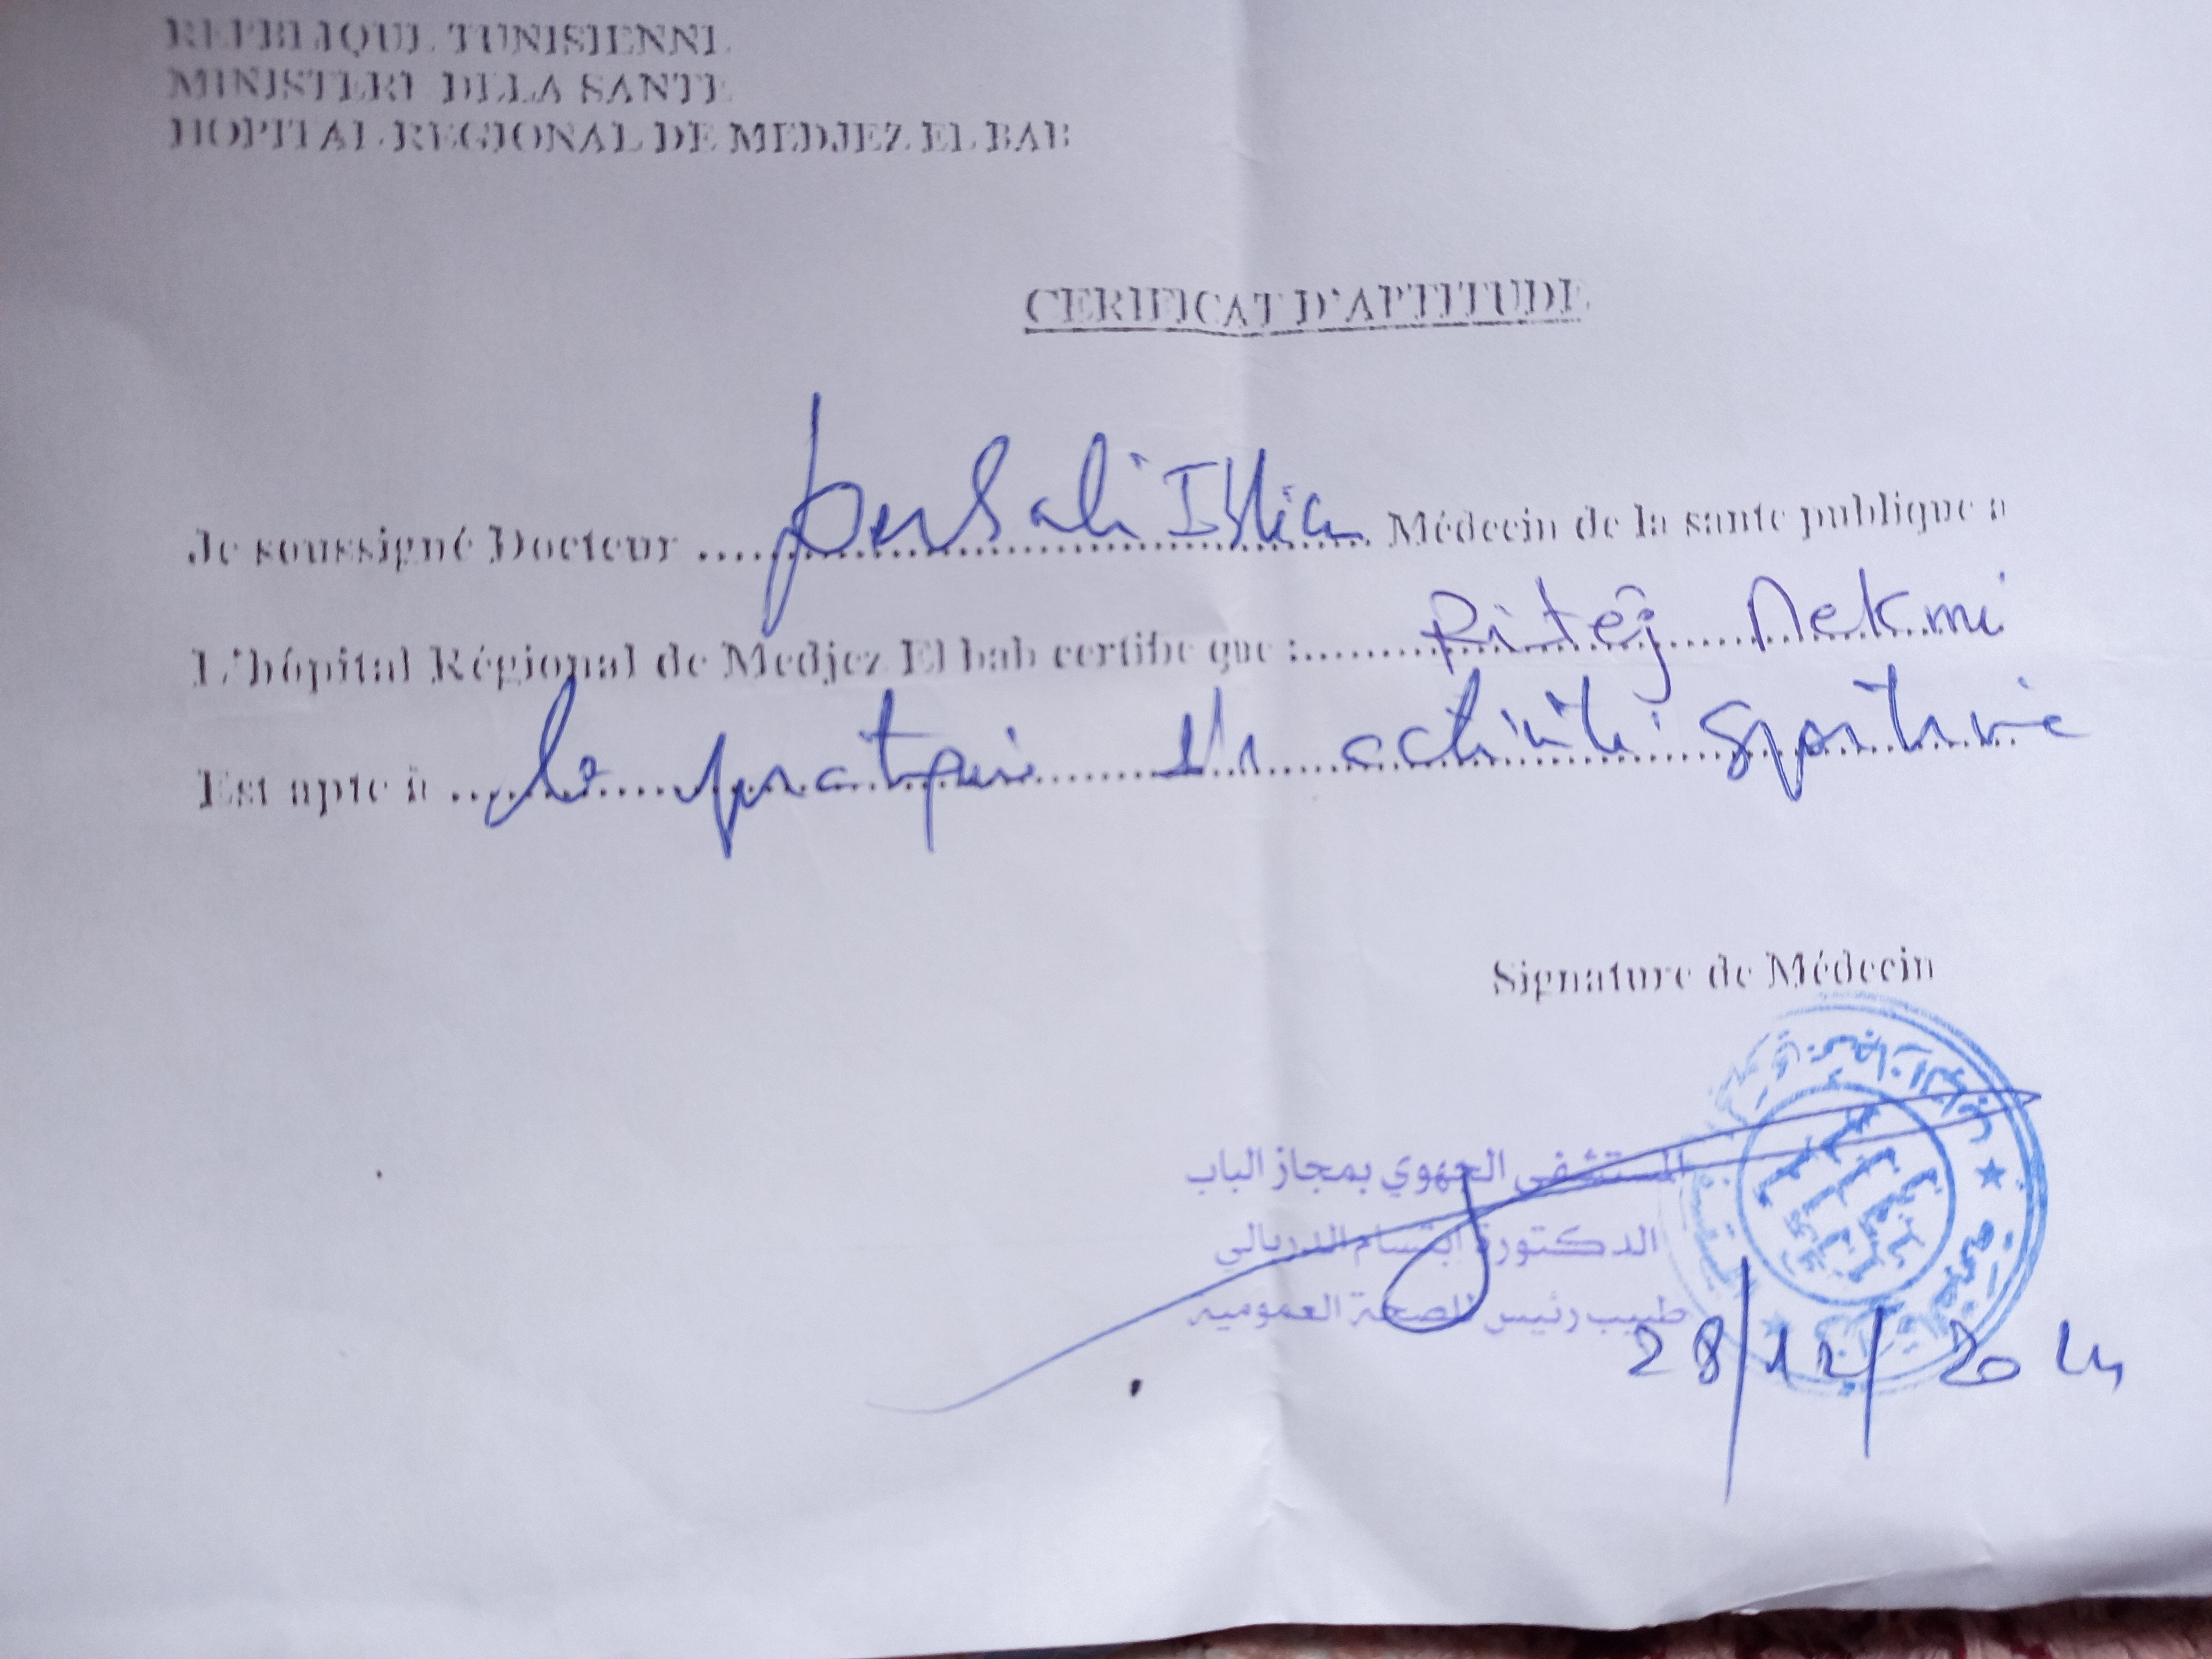 REPBLIQUE TUNISIENNE
MINISTERE DELLA SANTE
HOPITAL REGIONAL DE MEDJEZ EL BAB
CERIFICAT D'APTITUDE
Je soussigné Docteur .................... Médecin de la sante publique a
L'hôpital Régional de Medjez El bab certifie que :........ Ritej Mekmi
Est apte à ...la pratique d'1 activité sportive
Signature de Médecin
المستشفى الجهوي بمجاز الباب
الدكتورة ابتسام الدربالي
طبيب رئيس للصحة العمومية
28/12/2024